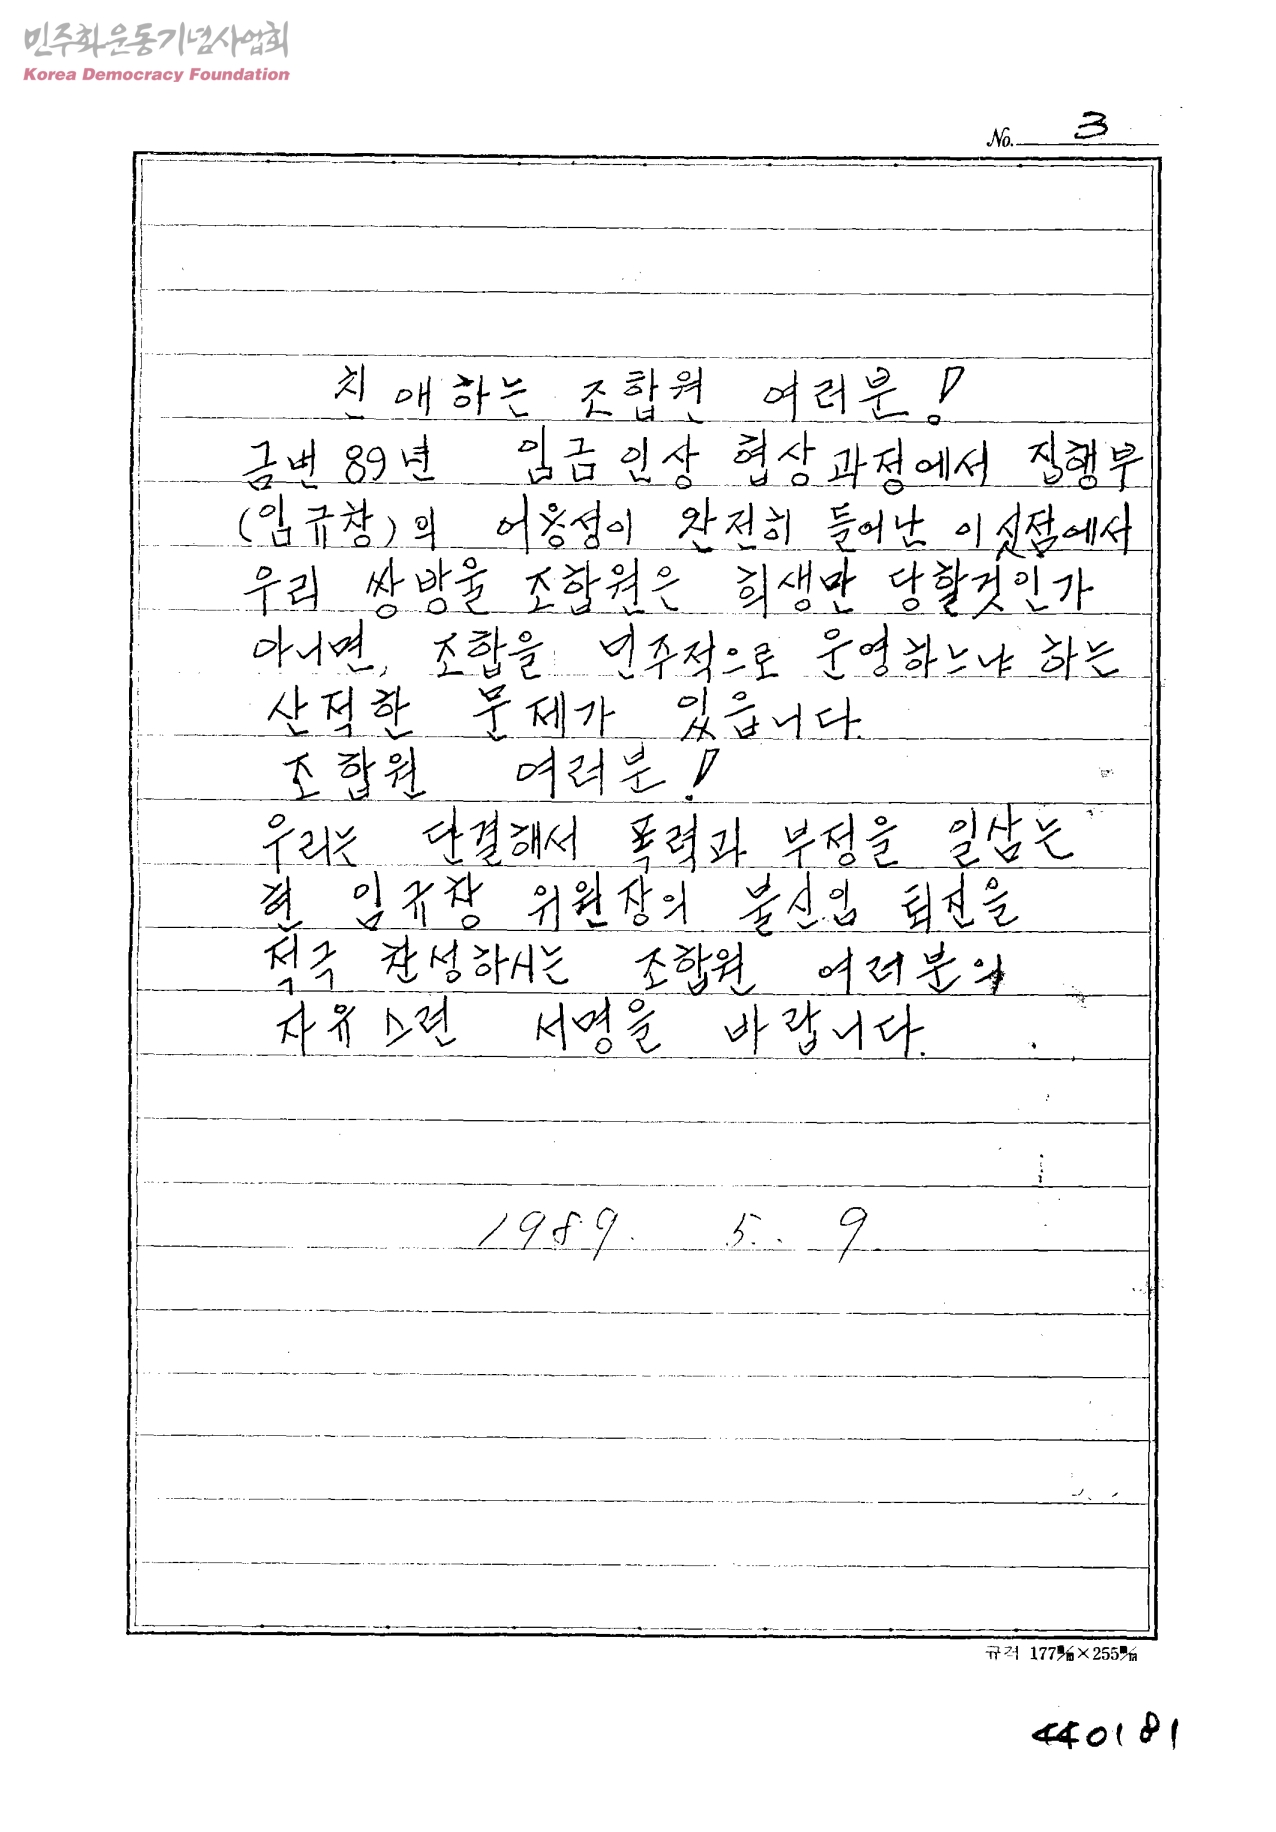 민주화운동기념사업회
Korea Democracy Foundation
No. 3
친애하는 조합원 여러분!
금번 89년 임금인상 협상과정에서 집행부
(임규창)의 어용성이 완전히 들어난 이싯점에서
우리 쌍방울 조합원은 희생만 당할것인가
아니면, 조합을 민주적으로 운영하느냐 하는
산적한 문제가 있읍니다.
조합원 여러분!
우리는 단결해서 폭력과 부정을 일삼는
현 임규창 위원장의 불신임 퇴진을
적극 찬성하시는 조합원 여러분의
자유스런 서명을 바랍니다.
1989. 5. 9
규격 177㎜×255㎜
440181